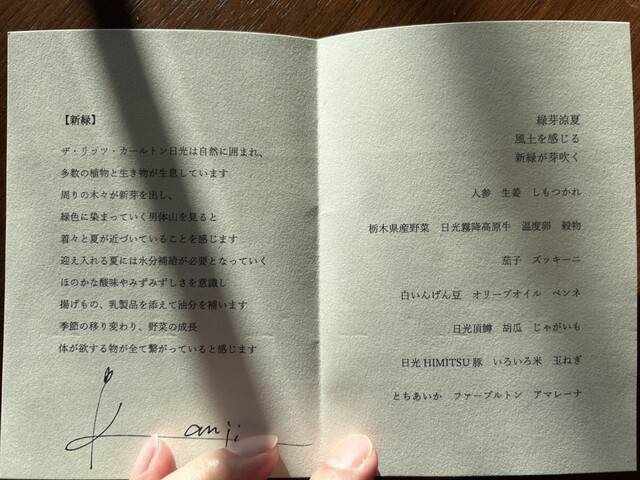 【新緑】
ザ・リッツ・カールトン日光は自然に囲まれ、
多数の植物と生き物が生息しています
周りの木々が新芽を出し、
緑色に染まっていく男体山を見ると
着々と夏が近づいていることを感じます
迎え入れる夏には水分補給が必要となっていく
ほのかな酸味やみずみずしさを意識し
揚げもの、乳製品を添えて油分を補います
季節の移り変わり、野菜の成長
体が欲する物が全て繋がっていると感じます
Kanji
緑芽涼夏
風土を感じる
新緑が芽吹く
人参 生姜 しもつかれ
栃木県産野菜 日光霧降高原牛 温度卵 穀物
茄子 ズッキーニ
白いんげん豆 オリーブオイル ペンネ
日光頂鱒 胡瓜 じゃがいも
日光HIMITSU豚 いろいろ米 玉ねぎ
とちあいか ファーブルトン アマレーナ